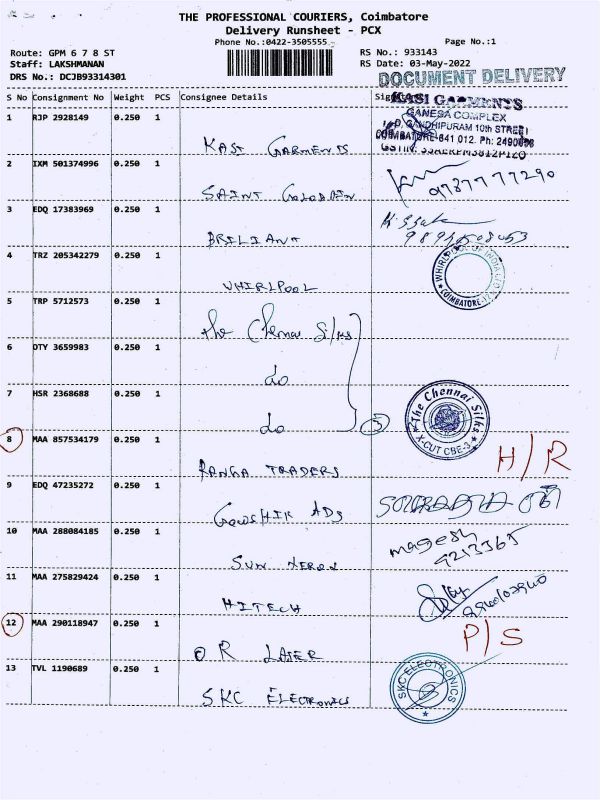 THE PROFESSIONAL COURIERS, Coimbatore
Delivery Runsheet - PCX
Phone No.:0422-3505555
Page No.:1
Route: GPM 6 7 8 ST
RS No.: 933143
Staff: LAKSHMANAN
RS Date: 03-May-2022
DRS No.: DCJB93314301
DOCUMENT DELIVERY
S No Consignment No Weight PCS Consignee Details
KASI GARMENTS
GANESA COMPLEX
GANDHIPURAM 10th STREET
COIMBATORE-641 012. Ph: 2490
1 RJP 2928149 0.250 1
KASI GARMENTS
2 IXM 501374996 0.250 1
SAINT
9787777290
3 EDQ 17383969 0.250 1
BRILIANT
4 TRZ 205342279 0.250 1
WHIRLPOOL
WHIRLPOOL OF INDIA LTD
COIMBATORE
5 TRP 5712573 0.250 1
The Chennai Silks
6 DTY 3659983 0.250 1
do
7 HSR 2368688 0.250 1
do
3
The Chennai Silks
X-CUT CBE-3
8 MAA 857534179 0.250 1
RANGA TRADERS
H/R
9 EDQ 47235272 0.250 1
GOWSHIK ADS
10 MAA 288084185 0.250 1
SUN
magesh
11 MAA 275829424 0.250 1
HITECH
12 MAA 290118947 0.250 1
O R LASER
P/S
13 TVL 1190689 0.250 1
SKC ELECTRONICS
SKC ELECTRONICS